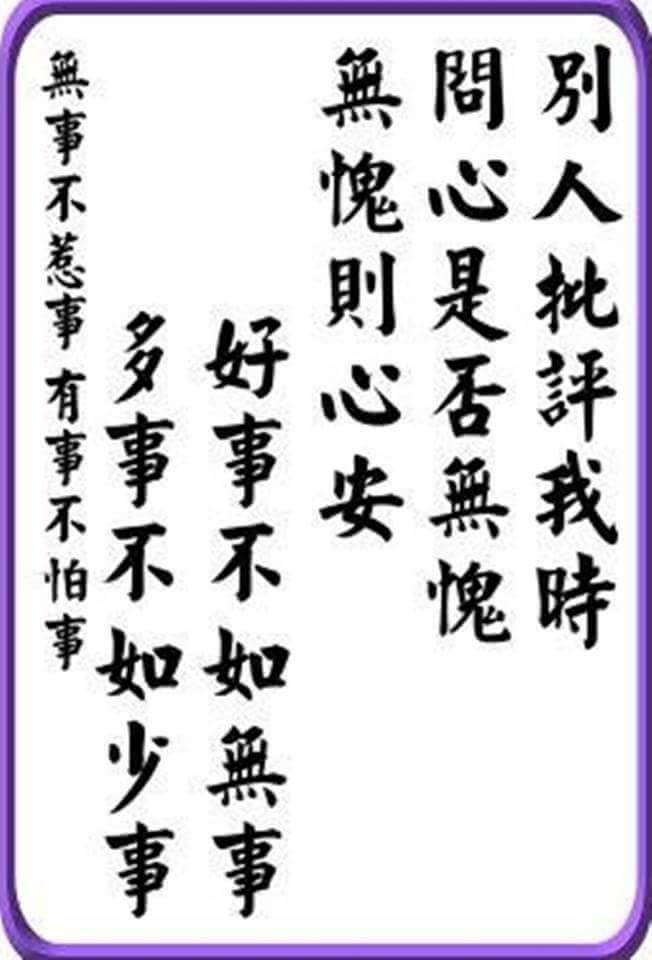 別人批評我時
問心是否無愧
無愧則心安
好事不如無事
多事不如少事
無事不惹事 有事不怕事